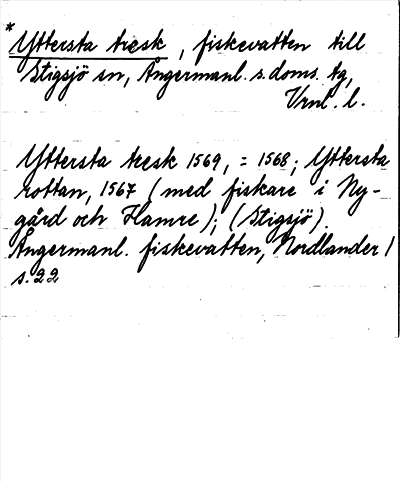 *Yttersta tresk, fiskevatten till
Stigsjö sn, Ångermanl. s. doms. tg,
Vrnl. l.
Yttersta tresk 1569, = 1568; Yttersta
rottan, 1567 (med fiskare i Ny-
gård och Hamre); (Stigsjö).
Ångermanl. fiskevatten, Nordlander 1
s. 22